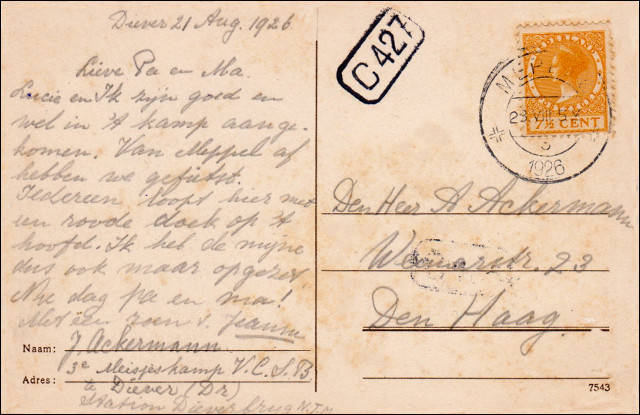 Diever 21 Aug. 1926
Lieve Pa en Ma.
Lucie en Ik zijn goed en
wel in 't kamp aange-
komen. Van Meppel af
hebben we gefietst.
Iedereen loopt hier met
een roode doek op 't
hoofd. Ik heb de mijne
dus ook maar opgezet
Nu dag pa en ma!
Met een zoen v. Jeanne
Naam: J. Ackermann
3e Meisjeskamp V.C.S.B
Adres: te Diever (Dr)
Station Dieverbrug N.T.M
C427
7½ CENT
1926
Den Heer A Ackermann
Weimarstr. 23
Den Haag.
7543